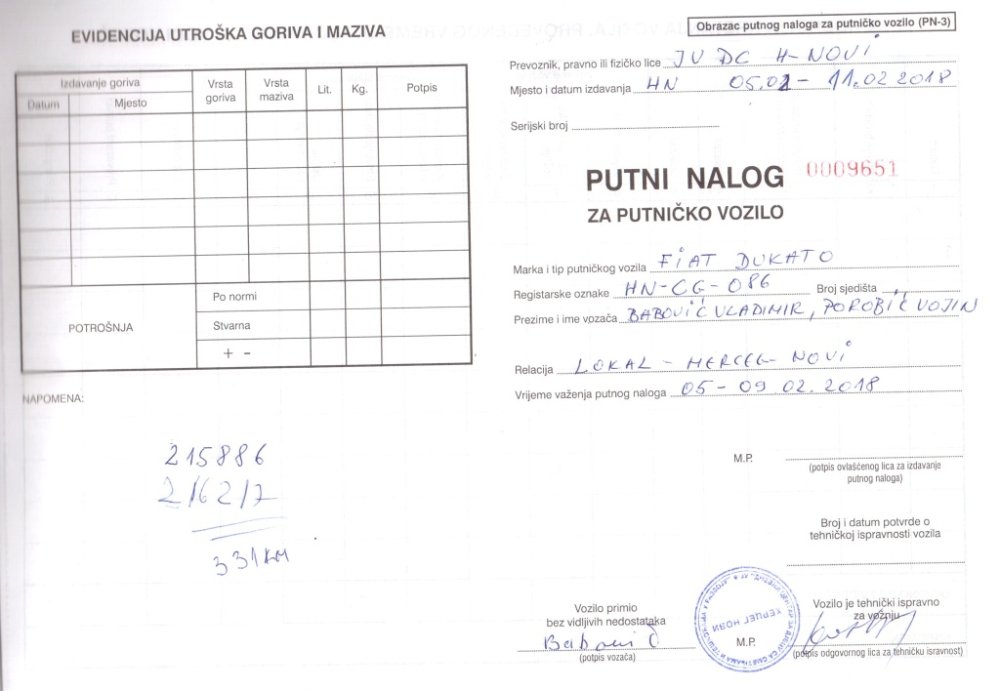 EVIDENCIJA UTROŠKA GORIVA I MAZIVA
Izdavanje goriva
Datum
Mjesto
Vrsta goriva
Vrsta maziva
Lit.
Kg.
Potpis
POTROŠNJA
Po normi
Stvarna
+ -
NAPOMENA:
215886
216217
331 km
Obrazac putnog naloga za putničko vozilo (PN-3)
Prevoznik, pravno ili fizičko lice JU DC H-NOVI
Mjesto i datum izdavanja HN 05.02 - 11.02 2018
Serijski broj
PUTNI NALOG 0009651
ZA PUTNIČKO VOZILO
Marka i tip putničkog vozila FIAT DUKATO
Registarske oznake HN-CG-086 Broj sjedišta
Prezime i ime vozača BABOVIĆ VLADIMIR, POROBIĆ VOJIN
Relacija LOKAL - HERCEG-NOVI
Vrijeme važenja putnog naloga 05-09 02.2018
M.P.
(potpis ovlašćenog lica za izdavanje
putnog naloga)
Broj i datum potvrde o
tehničkoj ispravnosti vozila
Vozilo primio
bez vidljivih nedostataka
Babović
(potpis vozača)
ХЕРЦЕГ НОВИ
M.P.
Vozilo je tehnički ispravno
za vožnju
(potpis odgovornog lica za tehničku isravnost)